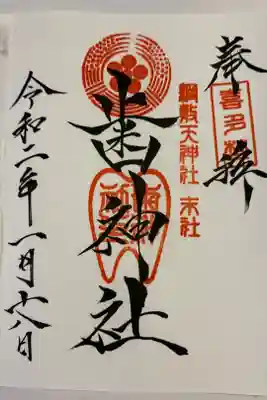 奉拝
喜多埜
綱敷天神社 末社
歯神社
令和二年一月十八日